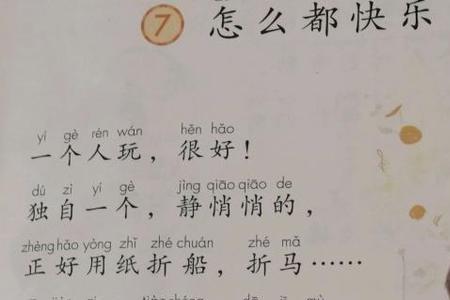 7 怎么都快乐
yí gè rén wán hěn hǎo
一个人玩，很好！
dú zì yí gè jìng qiāo qiāo de
独自一个，静悄悄的，
zhèng hǎo yòng zhǐ zhé chuán zhé mǎ
正好用纸折船，折马……